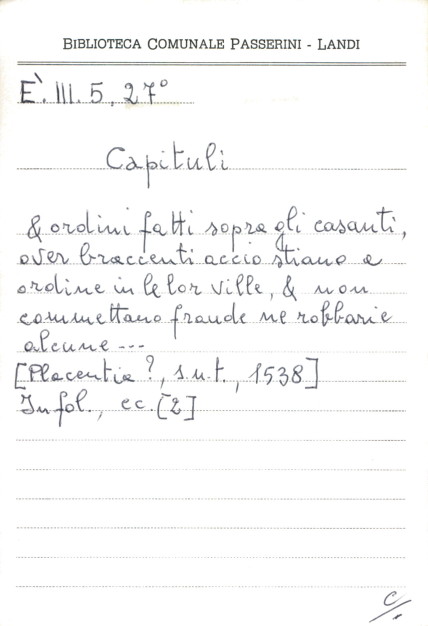 BIBLIOTECA COMUNALE PASSERINI - LANDI
E'. III. 5, 27°
Capituli
& ordini fatti sopra gli casanti,
over braccenti accio stiano a
ordine in le lor ville, & non
commettano fraude ne robbarie
alcune ---
[Placentia?, s.n.t., 1538]
In fol., cc. [2]
C/